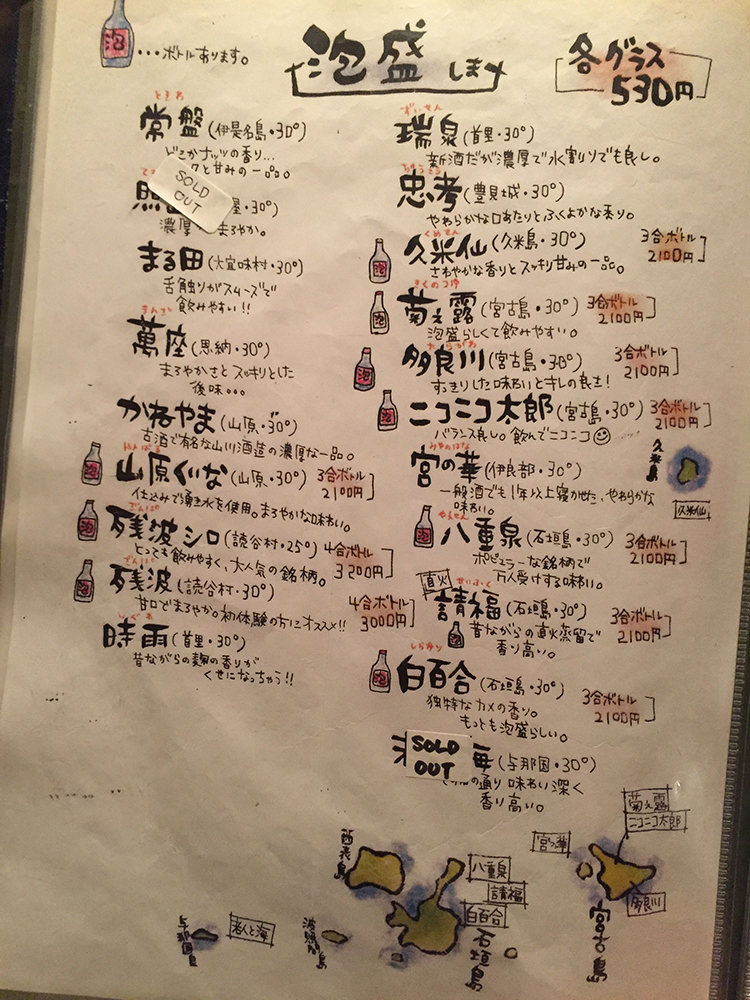 泡
・・・ボトルあります。
泡盛
しま
各グラス
530円
ときわ
常盤(伊是名島・30°)
どこかナッツの香り…
クと甘みの一品。
SOLD
OUT
照
屋・30°)
濃厚
まろやか。
まる田(大宜味村・30°)
舌触りがスムーズで
飲みやすい!!
まんざ
萬座(恩納・30°)
まろやかさとスッキリとした
後味...
かねやま(山原・30°)
古酒で有名な山川酒造の濃厚な一品。
やんばる
山原くいな(山原・30°)
3合ボトル
2100円
仕込みで湧き水を使用。まろやかな味わい。
ざんぱ
残波シロ(読谷村・25°)
4合ボトル
3200円
とっても飲みやすく、大人気の銘柄。
残波(読谷村・30°)
4合ボトル
3000円
甘口でまろやか。初体験の方にオススメ!!
しぐれ
時雨(首里・30°)
昔ながらの麹の香りが
くせになっちゃう!!
ずいせん
瑞泉(首里・30°)
新酒だが濃厚で水割りでも良し。
忠孝(豊見城・30°)
やわらかな口あたりとふくよかな香り。
くめせん
久米仙(久米島・30°)
3合ボトル
2100円
さわやかな香りとスッキリ甘みの一品。
きくのつゆ
菊之露(宮古島・30°)
3合ボトル
2100円
泡盛らしくて飲みやすい。
たらがわ
多良川(宮古島・30°)
3合ボトル
2100円
すっきりした味わいとキレの良さ!
ニコニコ太郎(宮古島・30°)
3合ボトル
2100円
バランス良し。飲んでニコニコ
みやのはな
宮の華(伊良部・30°)
一般酒でも1年以上寝かせた、やわらかな
味わい。
やえせん
八重泉(石垣島・30°)
3合ボトル
2100円
ポピュラーな銘柄で
万人受けする味わい。
直火
せいふく
請福(石垣島・30°)
3合ボトル
2100円
昔ながらの直火蒸留で
香り高い。
しらゆり
白百合(石垣島・30°)
3合ボトル
2100円
独特なカメの香り。
もっとも泡盛らしい。
SOLD
OUT
海(与那国・30°)
の通り味わい深く
香り高い。
久米島
久米仙
菊之露
ニコニコ太郎
宮の華
多良川
宮古島
西表島
八重泉
請福
白百合
石垣島
波照間島
老人と海
与那国島